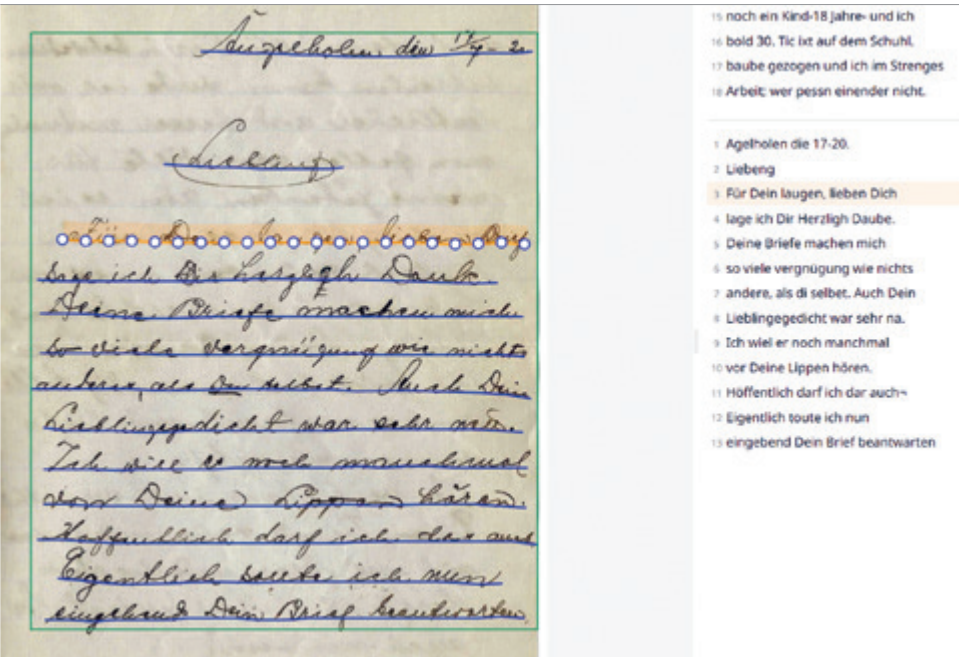 Ängelholm den
Für Dein langen, lieben Brief
sage ich Dir Dank.
Deine Briefe machen mich
so viele vergnügung wie nichts
anderes, als Du selbst. Auch Dein
Lieblingsgedicht war sehr
Ich will es noch manchmal
von Deine Lippen hören.
Hoffentlich darf ich das auch
Eigentlich sollte ich nun
eingehend Dein Brief beantworten
15 noch ein Kind-18 Jahre- und ich
16 bold 30. Tic ixt auf dem Schuhl.
17 baube gezogen und ich im Strenges
18 Arbeit; wer pessn einender nicht.
1 Agelholen die 17-20.
2 Liebeng
3 Für Dein laugen, lieben Dich
4 lage ich Dir Herzligh Daube.
5 Deine Briefe machen mich
6 so viele vergnügung wie nichts
7 andere, als di selbet. Auch Dein
8 Lieblingegedicht war sehr na.
9 Ich wiel er noch manchmal
10 vor Deine Lippen hören.
11 Höffentlich darf ich dar auch¬
12 Eigentlich toute ich nun
13 eingebend Dein Brief beantwarten